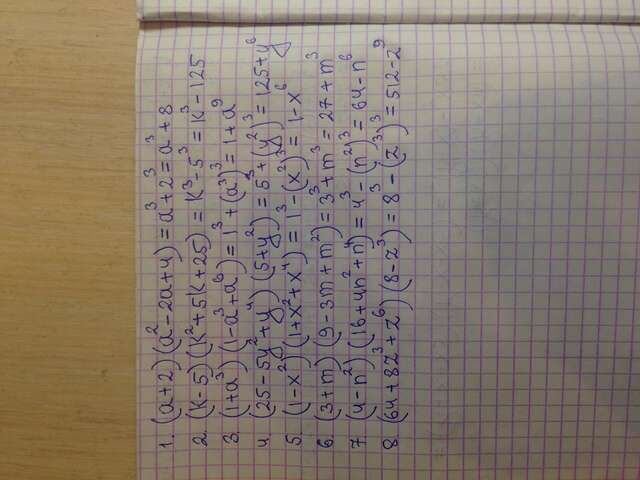 1. (a+2)(a²-2a+4) = a³+2³= a³+8
2. (k-5)(k²+5k+25) = k³-5³= k³-125
3. (1+a³)(1-a³+a⁶)= 1³+(a³)³= 1+a⁹
4. (25-5y²+y⁴)(5+y²) = 5³+(y²)³=125+y⁶
5. (1-x²)(1+x²+x⁴)= 1³-(x²)³= 1-x⁶
6. (3+m)(9-3m+m²)= 3³+m³= 27+m³
7. (4-n²)(16+4n²+n⁴)= 4³-(n²)³= 64-n⁶
8 (64+8z³+z⁶)(8-z³)= 8³-(z³)³= 512-z⁹